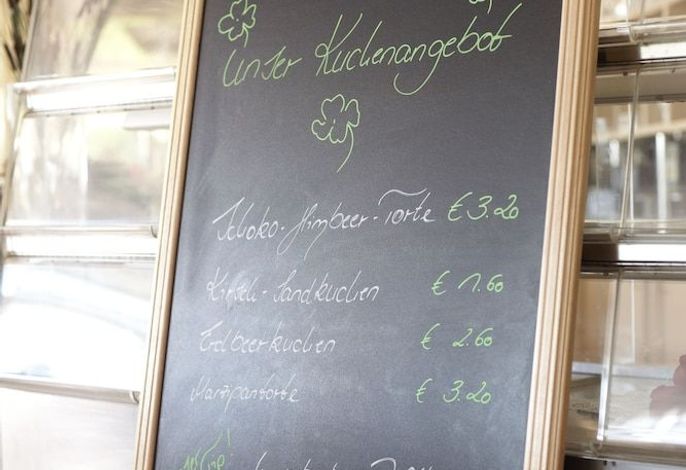 Unser Kuchenangebot
Schoko-Himbeer-Torte € 3.20
Kirsch-Sandkuchen € 1.60
Erdbeerkuchen € 2.60
Marzipantorte € 3.20